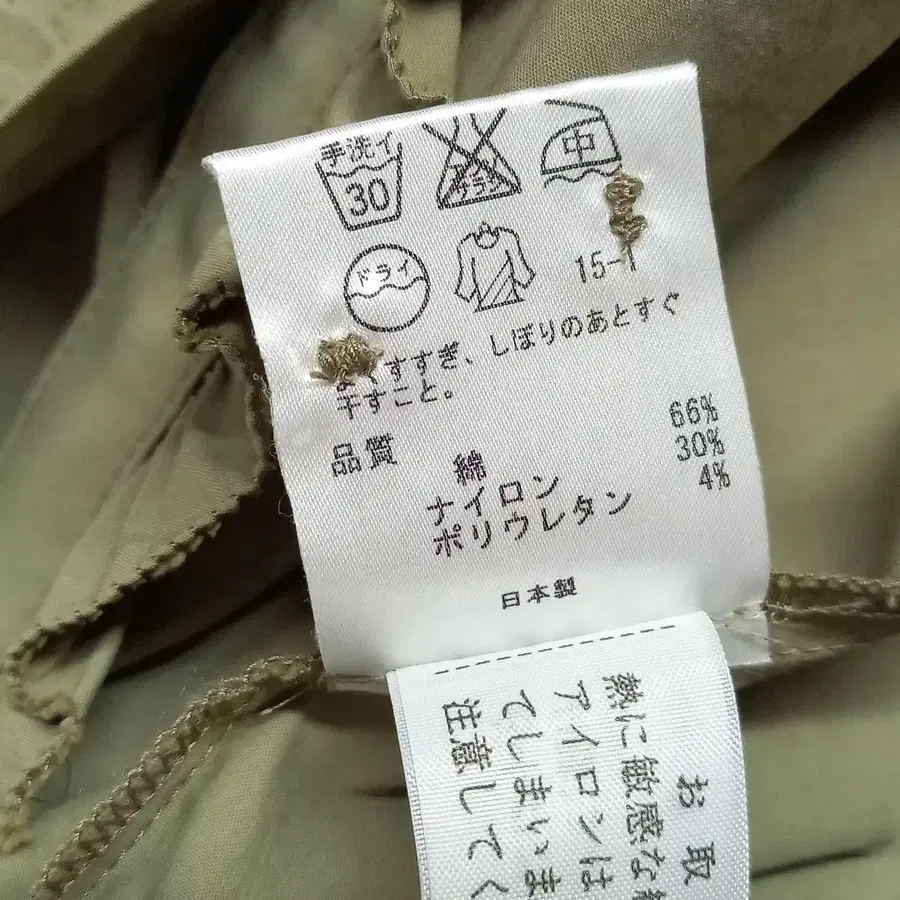 手洗イ
30
中
ドライ
15-1
よくすすぎ、しぼりのあとすぐ
干すこと。
品質
綿 66%
ナイロン 30%
ポリウレタン 4%
日本製
お取
熱に敏感な
アイロンは
てしまいま
注意してく